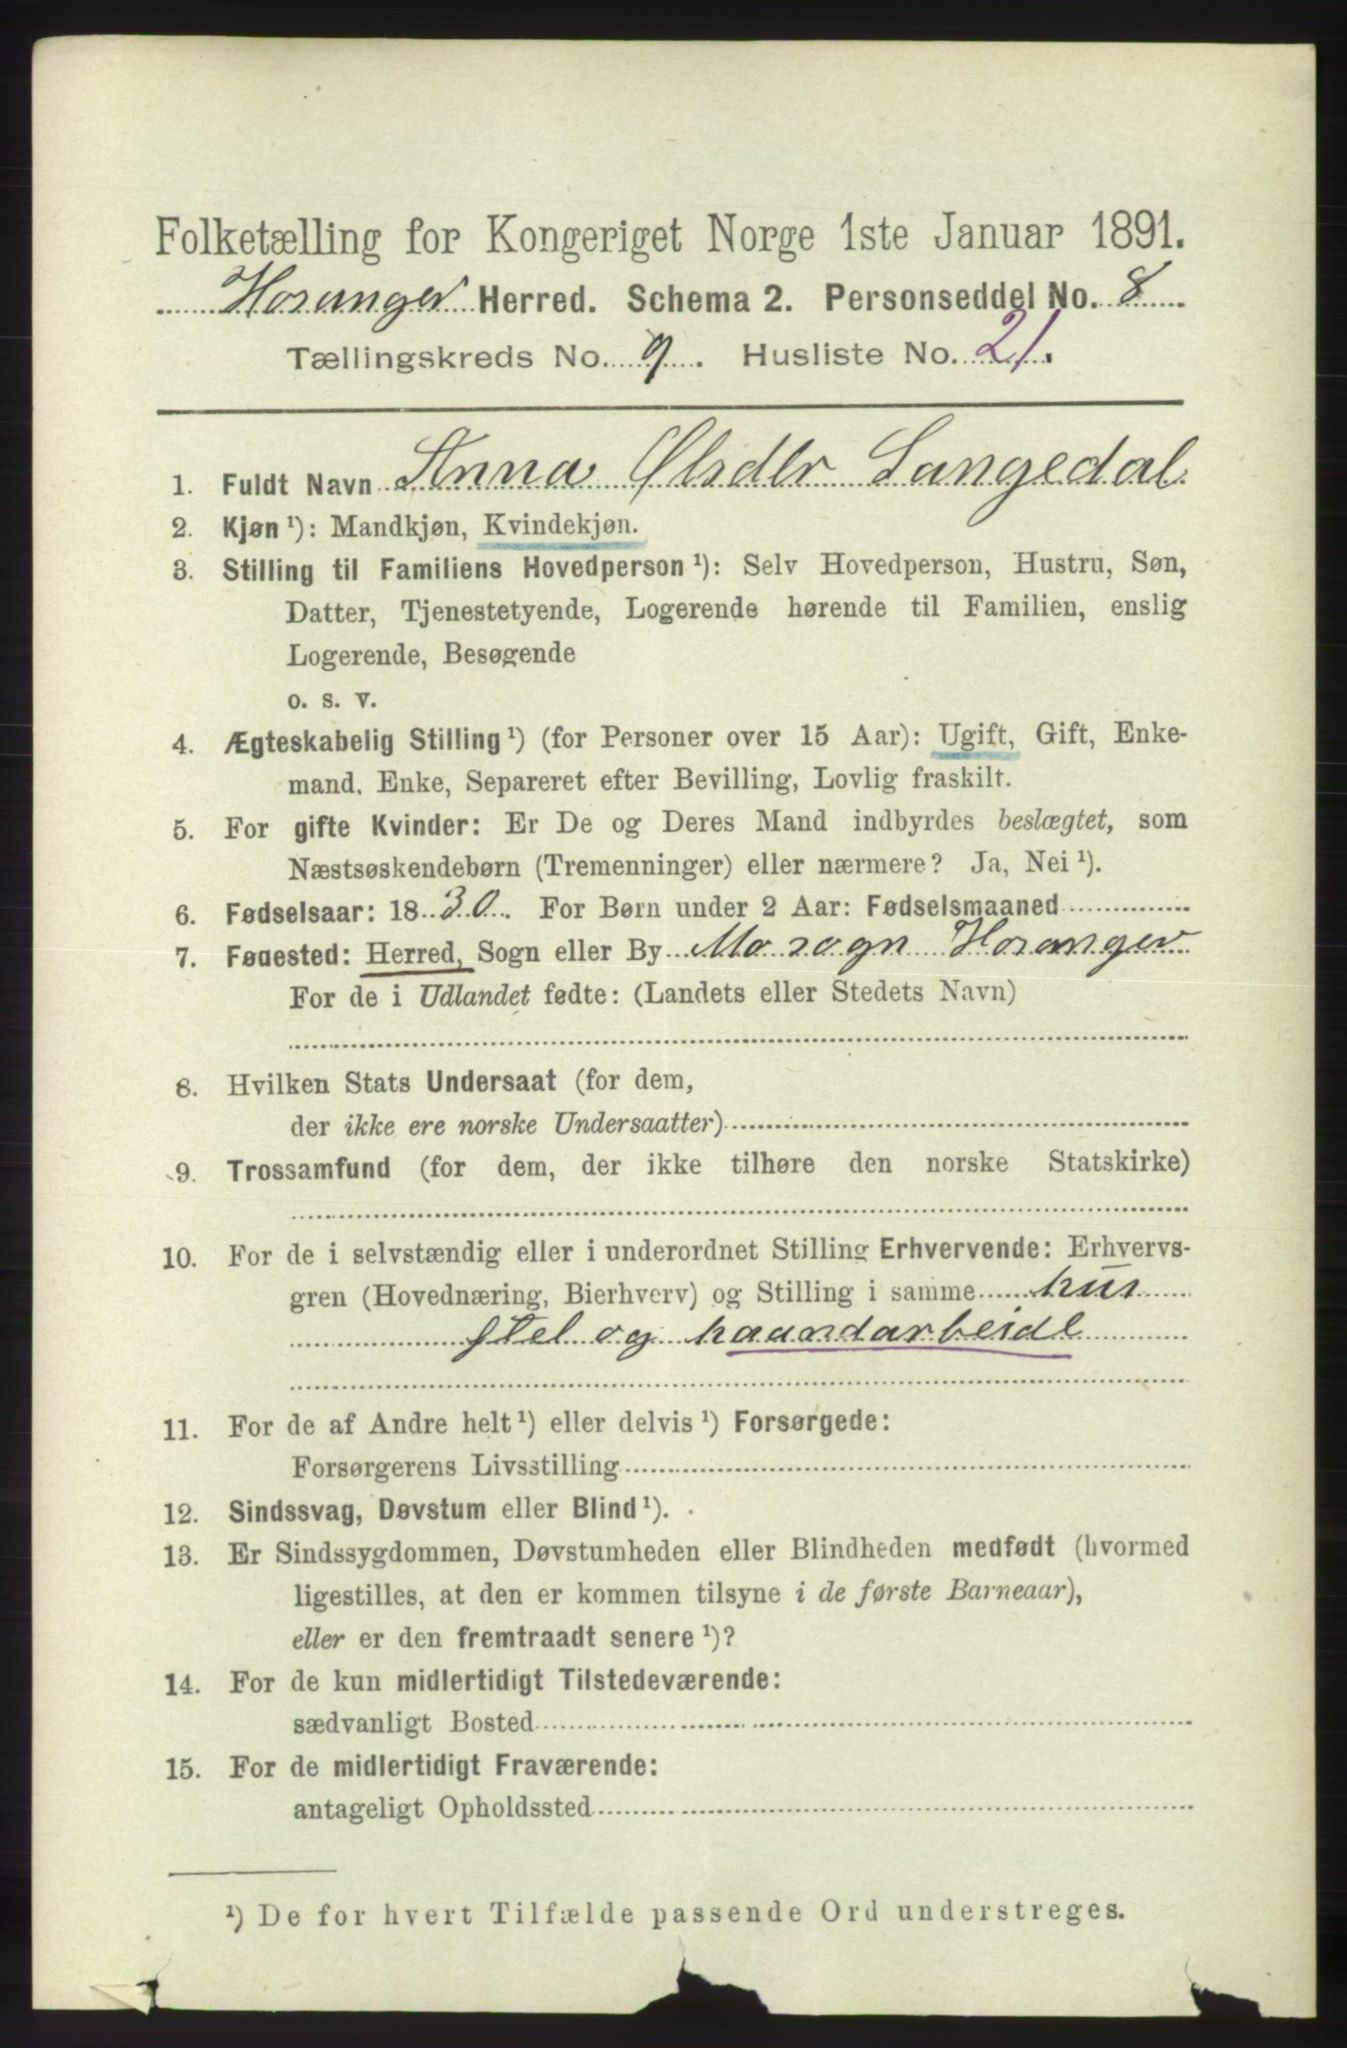 Folketælling for Kongeriget Norge 1ste Januar 1891.
Hosanger Herred. Schema 2. Personseddel No. 8
Tællingskreds No. 9. Husliste No. 21.
1. Fuldt Navn Anna Olsdtr Langedal
2. Kjøn ¹): Mandkjøn, Kvindekjøn.
3. Stilling til Familiens Hovedperson ¹): Selv Hovedperson, Hustru, Søn,
Datter, Tjenestetyende, Logerende hørende til Familien, enslig
Logerende, Besøgende
o. s. v.
4. Ægteskabelig Stilling ¹) (for Personer over 15 Aar): Ugift, Gift, Enke-
mand, Enke, Separeret efter Bevilling, Lovlig fraskilt.
5. For gifte Kvinder: Er De og Deres Mand indbyrdes beslægtet, som
Næstsøskendebørn (Tremenninger) eller nærmere? Ja, Nei ¹).
6. Fødselsaar: 1830. For Børn under 2 Aar: Fødselsmaaned
7. Føuested: Herred, Sogn eller By Mo sogn Hosanger
For de i Udlandet fødte: (Landets eller Stedets Navn)
8. Hvilken Stats Undersaat (for dem,
der ikke ere norske Undersaatter)
9. Trossamfund (for dem, der ikke tilhøre den norske Statskirke)
10. For de i selvstændig eller i underordnet Stilling Erhvervende: Erhvervs-
gren (Hovednæring, Bierhverv) og Stilling i samme hus
stel og haandarbeide
11. For de af Andre helt ¹) eller delvis ¹) Forsørgede:
Forsørgerens Livsstilling
12. Sindssvag, Døvstum eller Blind ¹).
13. Er Sindssygdommen, Døvstumheden eller Blindheden medfødt (hvormed
ligestilles, at den er kommen tilsyne i de første Barneaar),
eller er den fremtraadt senere ¹)?
14. For de kun midlertidigt Tilstedeværende:
sædvanligt Bosted
15. For de midlertidigt Fraværende:
antageligt Opholdssted
¹) De for hvert Tilfælde passende Ord understreges.